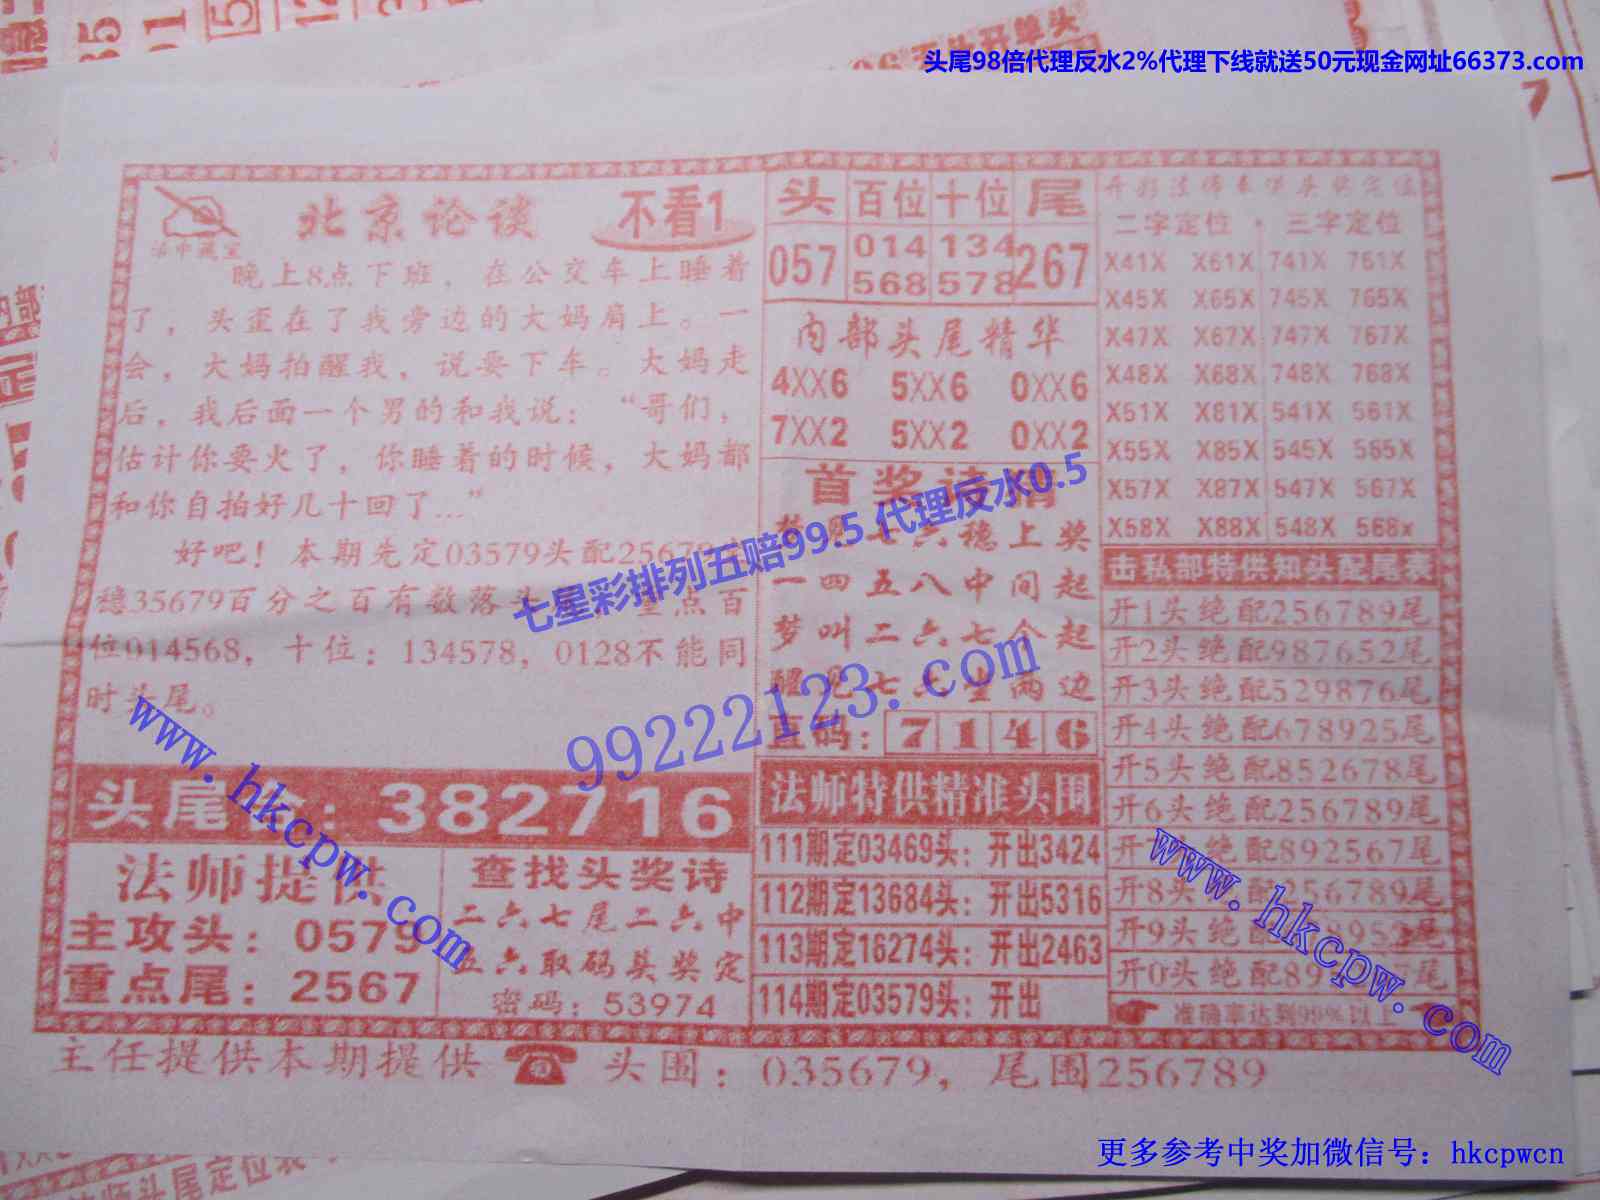 头尾98倍代理反水2%代理下线就送50元现金网址66373.com
北京论谈
不看1
晚上8点下班，在公交车上睡着
了，头歪在了我旁边的大妈肩上。一
会，大妈拍醒我，说要下车。大妈走
后，我后面一个男的和我说：“哥们，
估计你要火了，你睡着的时候，大妈都
和你自拍好几十回了…”
好吧！本期先定03579头配25679
稳35679百分之百有数落头 重点百
位014568，十位：134578，0128不能同
时头尾。
头尾合：382716
法师提供
主攻头：0579
重点尾：2567
查找头奖诗
二六七尾二六中
五六取码头奖定
密码：53974
头 百位 十位 尾
057 014 134 267
568 578
内部头尾精华
4XX6 5XX6 0XX6
7XX2 5XX2 0XX2
首奖诗
七六稳上奖
一四五八中间起
梦叫二六七个起
醒见七六坐两边
直码：7146
法师特供精准头围
111期定03469头：开出3424
112期定13684头：开出5316
113期定16274头：开出2463
114期定03579头：开出
二字定位·三字定位
X41X X61X 741X 761X
X45X X65X 745X 765X
X47X X67X 747X 767X
X48X X68X 748X 768X
X51X X81X 541X 561X
X55X X85X 545X 565X
X57X X87X 547X 567X
X58X X88X 548X 568x
特供知头配尾表
开1头绝配256789尾
开2头绝配987652尾
开3头绝配529876尾
开4头绝配678925尾
开5头绝配852678尾
开6头绝配256789尾
开7头绝配892567尾
开8头绝配256789尾
开9头绝配 尾
开0头绝配 尾
准确率达到99%以上
主任提供本期提供 头围：035679，尾围256789
七星彩排列五赔99.5 代理反水0.5
99222123.com
www.hkcpw.com
www.hkcpw.com
更多参考中奖加微信号：hkcpwcn